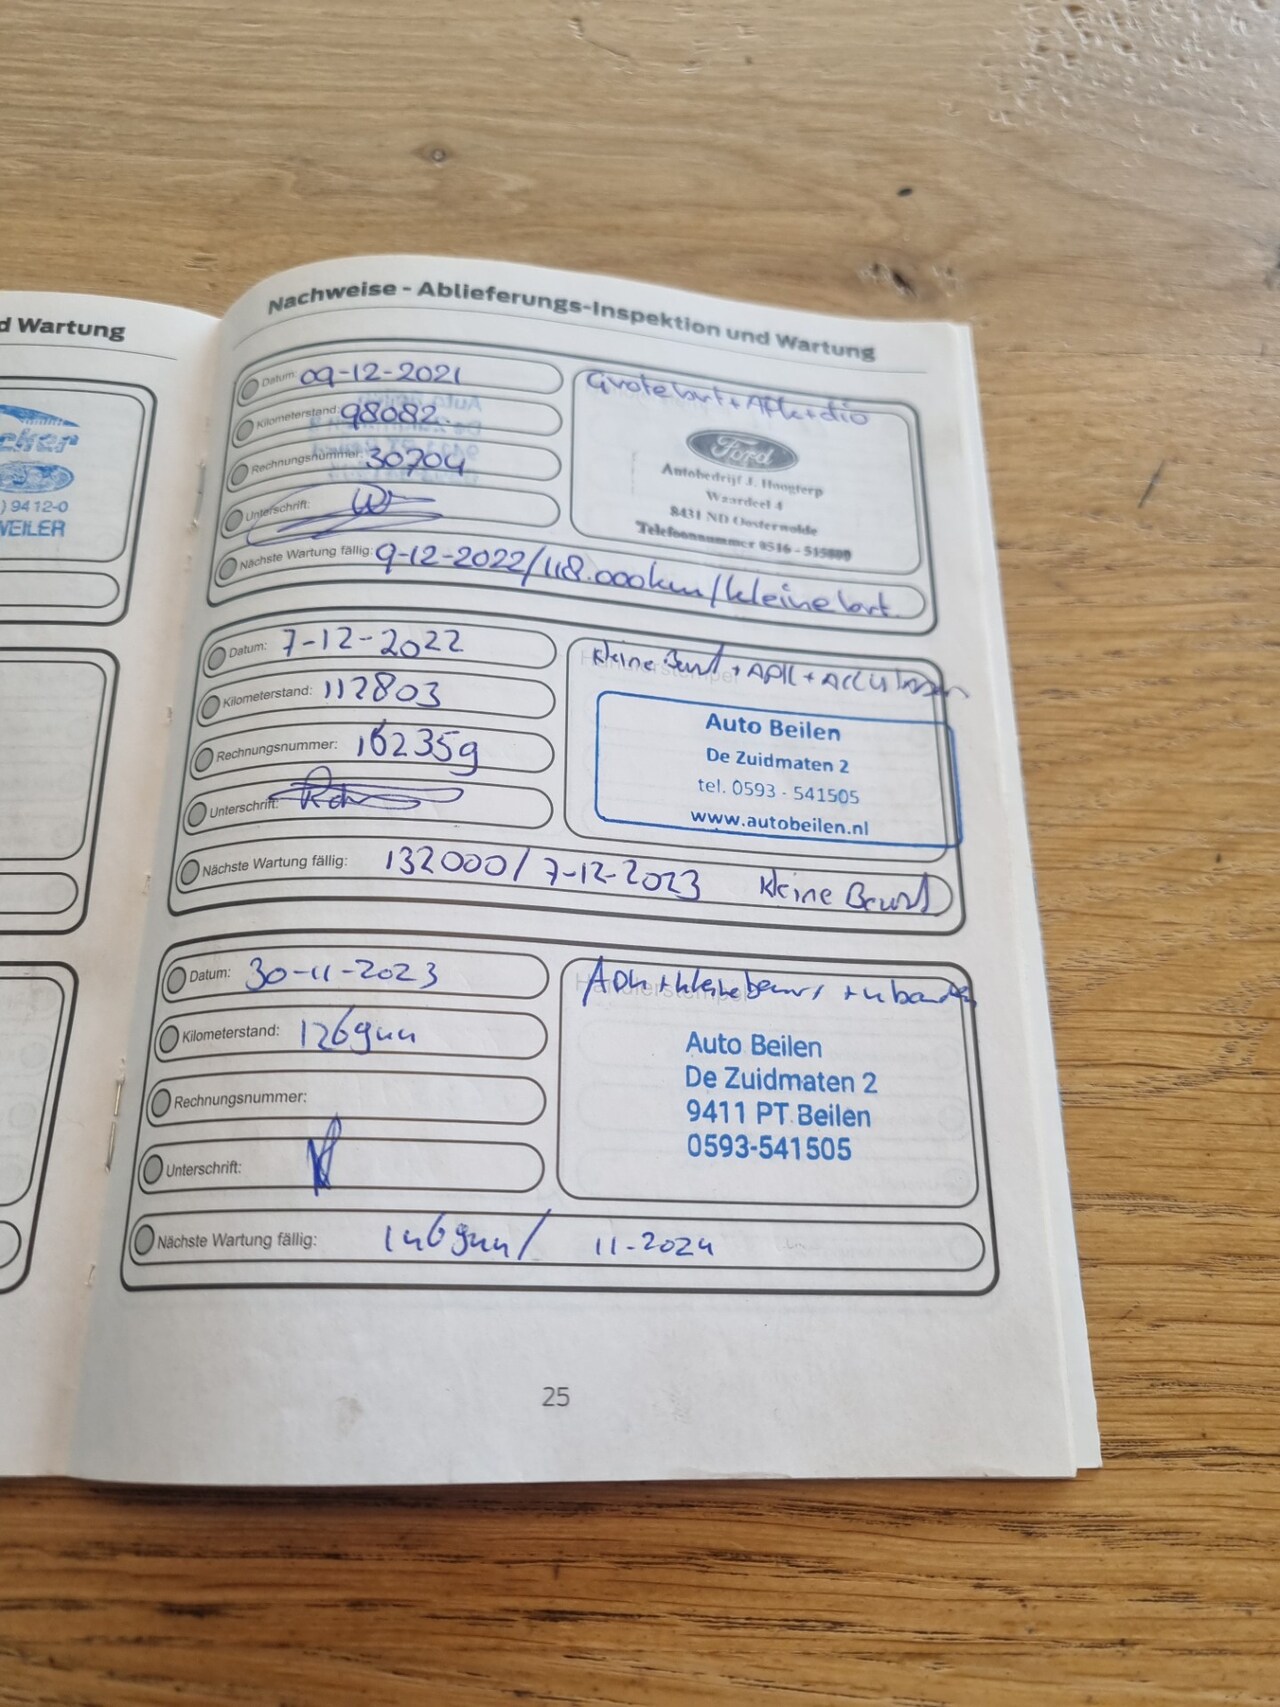 d Wartung
cker
) 94 12-0
WEILER
Nachweise - Ablieferungs-Inspektion und Wartung
Datum: 09-12-2021
Kilometerstand: 98082
Rechnungsnummer: 30704
Unterschrift:
Nächste Wartung fällig: 9-12-2022/118.000km/kleine
Ford
Autobedrijf J. Hoogterp
Waardeel 4
8431 ND Oosterwolde
Telefoonnummer 0516 - 515800
Datum: 7-12-2022
Kilometerstand: 112803
Rechnungsnummer: 162359
Unterschrift:
Nächste Wartung fällig: 132000/ 7-12-2023 kleine Beurt
Kleine Beurt + APK +
Händlerstempel
Auto Beilen
De Zuidmaten 2
tel. 0593 - 541505
www.autobeilen.nl
Datum: 30-11-2023
Kilometerstand:
Rechnungsnummer:
Unterschrift:
Nächste Wartung fällig: 11-2024
APK + kleine beurt +
Händlerstempel
Auto Beilen
De Zuidmaten 2
9411 PT Beilen
0593-541505
25